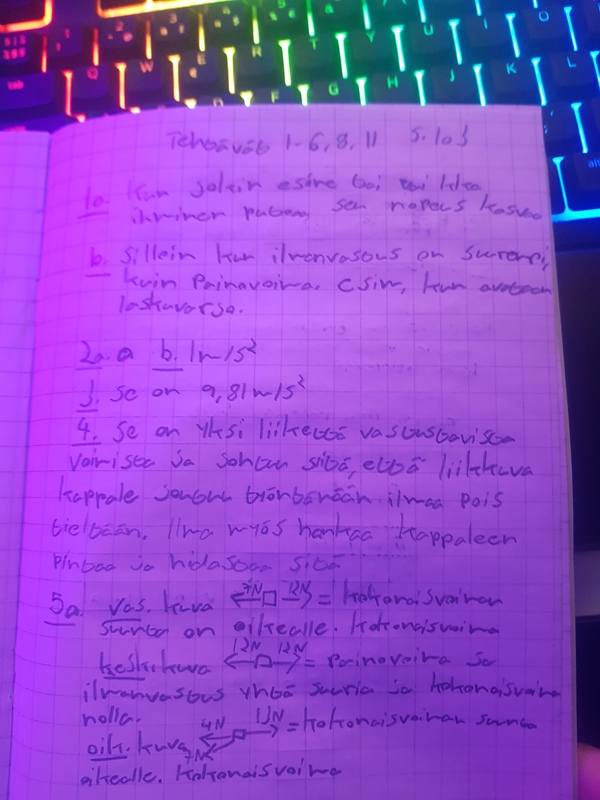 Tehtävät 1-6, 8, 11 s. 103
1a. Kun jokin esine tai vaikka
ihminen putoaa, sen nopeus kasvaa
b. Silloin kun ilmanvastus on suurempi,
kuin painovoima. Esim, kun avataan
laskuvarjo.
2a. a b. 1m/s²
3. Se on 9,81m/s²
4. Se on yksi liikettä vastustavista
voimista ja johtuu siitä, että liikkuva
kappale joutuu työntämään ilmaa pois
tieltään. Ilma myös hankaa kappaleen
pintaa ja hidastaa sitä
5a. vas. kuva 7N 12N = kokonaisvoiman
suunta on oikealle. Kokonaisvoima
keskikuva 12N 12N = painovoima ja
ilmanvastus yhtä suuria ja kokonaisvoima
nolla.
oik. kuva 4N 7N 11N = kokonaisvoiman suunta
oikealle. Kokonaisvoima
Q W E R T Y U I O
F G H J K L
tab
alt